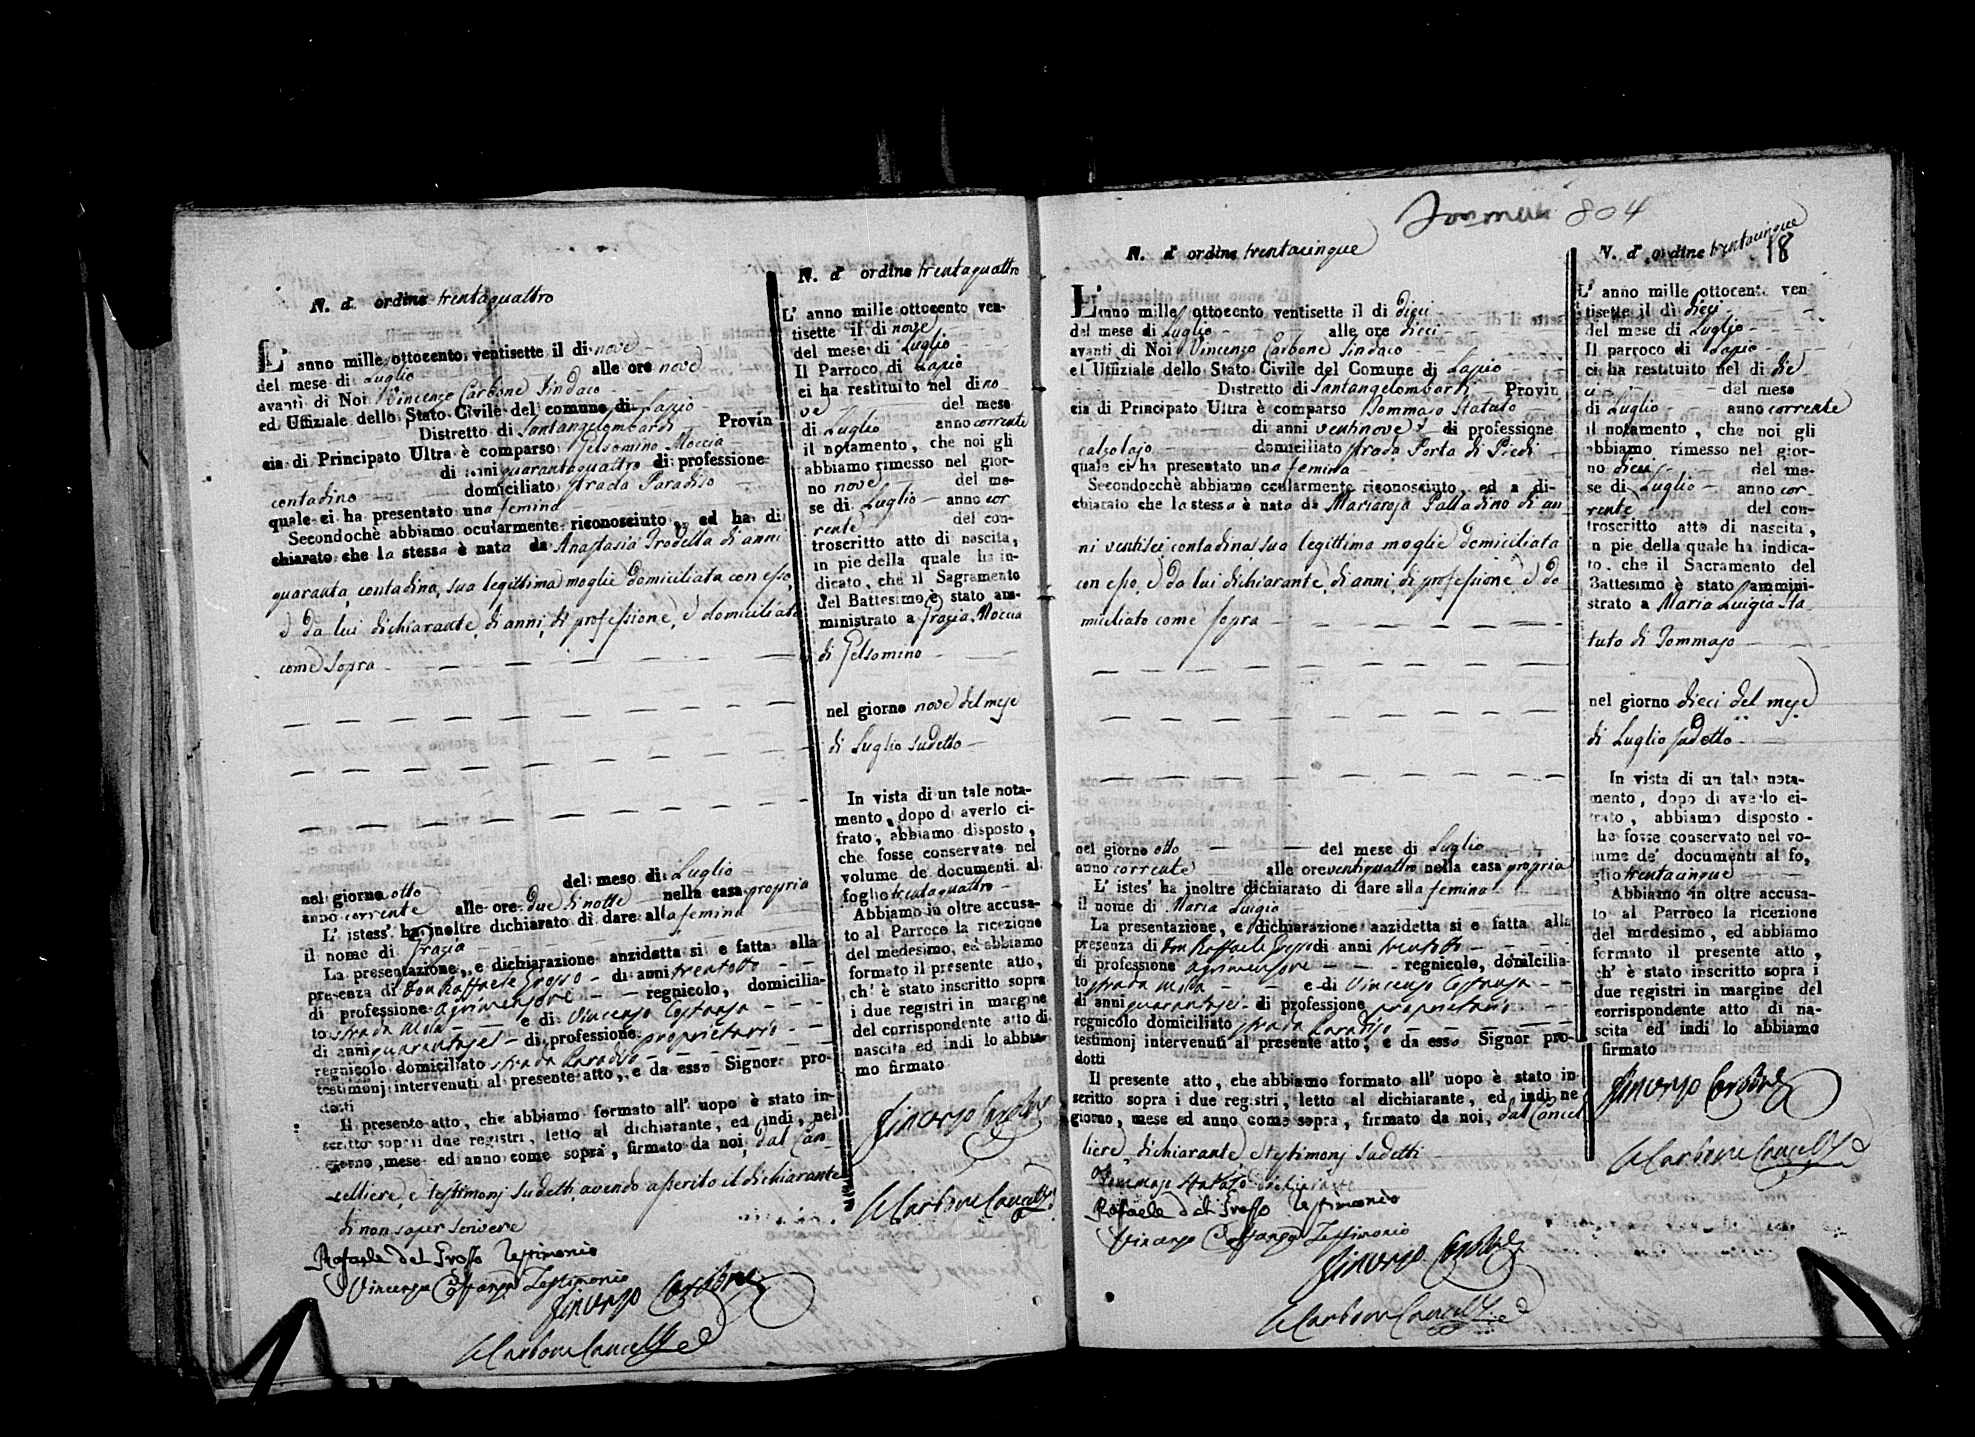 N. d' ordine trentaquattro
L' anno mille ottocento ventisette il di nove
del mese di Luglio alle ore nove
avanti di Noi Vincenzo Carbone Sindaco
ed Uffiziale dello Stato Civile del comune di Lapio
Distretto di Santangelombardi Provin
cia di Principato Ultra è comparso Gelsomino Moccia
di anni quarantaquattro di professione
contadino domiciliato strada Paradiso
quale ci ha presentato una femina
Secondochè abbiamo ocularmente riconosciuto, ed ha di
chiarato che la stessa è nata da Anastasia Trodella di anni
quaranta contadina, sua legittima moglie domiciliata con esso,
e da lui dichiarante, di anni, di professione, e domiciliato
come sopra
nel giorno otto del mese di Luglio
anno corrente alle ore due di notte nella casa propria
L' istess' ha inoltre dichiarato di dare alla femina
il nome di Grazia
La presentazione, e dichiarazione anzidetta si e fatta alla
presenza di Don Raffaele Grosso di anni trentotto
di professione agrimensore regnicolo, domicilia-
to strada Mola e di Vincenzo Costanza
di anni quarantasei di professione proprietario
regnicolo domiciliato strada Paradiso
testimonj intervenuti al presente atto, e da esso Signor pro-
dotti
Il presente atto, che abbiamo formato all' uopo è stato in-
scritto sopra i due registri, letto al dichiarante, ed indi, nel
giorno, mese ed anno come sopra, firmato da noi, dal Can-
celliere, e testimonj sudetti avendo asserito il dichiarante
di non saper scrivere
Rafaele del Grosso Testimonio
Vincenzo Costanza Testimonio
Vincenzo Carbone
Carbone Cancell.e
N. d' ordine trentaquattro
L' anno mille ottocento ven-
tisette il di nove
del mese di Luglio
Il Parroco di Lapio
ci ha restituito nel di no
ve del mese
di Luglio anno corrente
il notamento, che noi gli
abbiamo rimesso nel gior-
no nove del me-
se di Luglio anno cor
rente del con-
troscritto atto di nascita,
in pie della quale ha in-
dicato, che il Sagramento
del Battesimo è stato am-
ministrato a Grazia Moccia
di Gelsomino
nel giorno nove del mese
di Luglio sudetto
In vista di un tale nota-
mento, dopo di averlo ci-
frato, abbiamo disposto,
che fosse conservato nel
volume de' documenti al
foglio trentaquattro
Abbiamo in oltre accusa-
to al Parroco la ricezione
del medesimo, ed abbiamo
formato il presente atto,
ch' è stato inscritto sopra
i due registri in margine
del corrispondente atto di
nascita ed indi lo abbia-
mo firmato
Vincenzo Carbone
Carbone Cancell.e
804
18
N. d' ordine trentacinque
L' anno mille ottocento ventisette il di dieci
del mese di Luglio alle ore dieci
avanti di Noi Vincenzo Carbone Sindaco
ed Uffiziale dello Stato Civile del Comune di Lapio
Distretto di Santangelombardi Provin
cia di Principato Ultra è comparso Tommaso Statuto
di anni ventinove di professione
calzolajo domiciliato strada Porta di Piedi
quale ci ha presentato una femina
Secondocchè abbiamo ocularmente riconosciuto, ed a di-
chiarato che la stessa è nata da Mariarosa Palladino di an
ni ventisei contadina sua legittima moglie domiciliata
con esso, e da lui dichiarante, di anni, di professione, e do
miciliato come sopra
nel giorno otto del mese di Luglio
anno corrente alle ore ventiquattro nella casa propria
L' istes' ha inoltre dichiarato di dare alla femina
il nome di Maria Luigia
La presentazione, e dichiarazione anzidetta si e fatta alla
presenza di Don Raffaele Grosso di anni trentotto
di professione agrimensore regnicolo, domicilia-
to strada Mola e di Vincenzo Costanza
di anni quarantasei di professione proprietario
regnicolo domiciliato strada Paradiso
testimonj intervenuti al presente atto, e da esso Signor pro-
dotti
Il presente atto, che abbiamo formato all' uopo è stato in
scritto sopra i due registri, letto al dichiarante, ed indi ne
giorno, mese ed anno come sopra, firmato da noi, dal Cancel
liere, dichiarante e testimonj sudetti
Tommaso Statuto dichiarante
Rafaele del Grosso testimonio
Vincenzo Costanza Testimonio
Vincenzo Carbone
Carbone Cancell.e
N. d' ordine trentacinque
L' anno mille ottocento ven
tisette il di dieci
del mese di Luglio
Il parroco di Lapio
ci ha restituito nel di die
ci del mese
di Luglio anno corrente
il notamento, che noi gli
abbiamo rimesso nel gior-
no dieci del me-
se di Luglio anno cor-
rente del con-
troscritto atto di nascita,
in pie della quale ha indica-
to, che il Sacramento del
Battesimo è stato ammini-
strato a Maria Luigia Sta
tuto di Tommaso
nel giorno dieci del mese
di Luglio sudetto
In vista di un tale nota-
mento, dopo di averlo ci-
frato, abbiamo disposto
che fosse conservato nel vo-
lume de' documenti al fo,
glio trentacinque
Abbiamo in oltre accusa-
to al Parroco la ricezione
del medesimo, ed abbiamo
formato il presente atto,
ch' è stato inscritto sopra i
due registri in margine del
corrispondente atto di na-
scita ed indi lo abbiamo
firmato
Vincenzo Carbone
Carbone Cancell.e